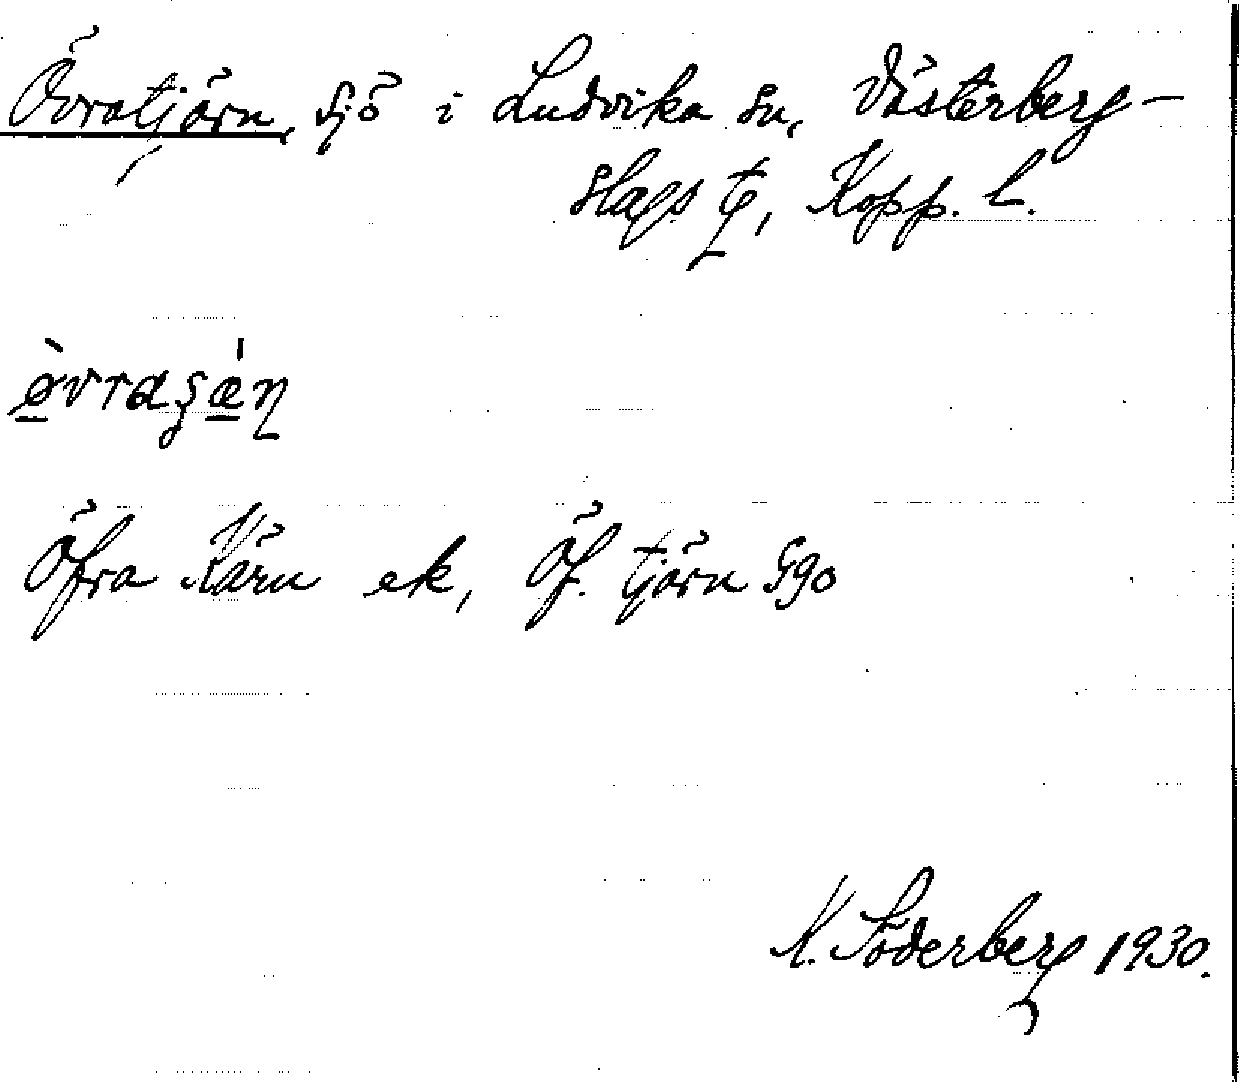 Övratjärn, sjö i Ludvika sn, Västerberg-
slags tg, Kopp. l.
Öfra Kärn ek, Öf. tjärn Ggo
K. Söderberg 1930.